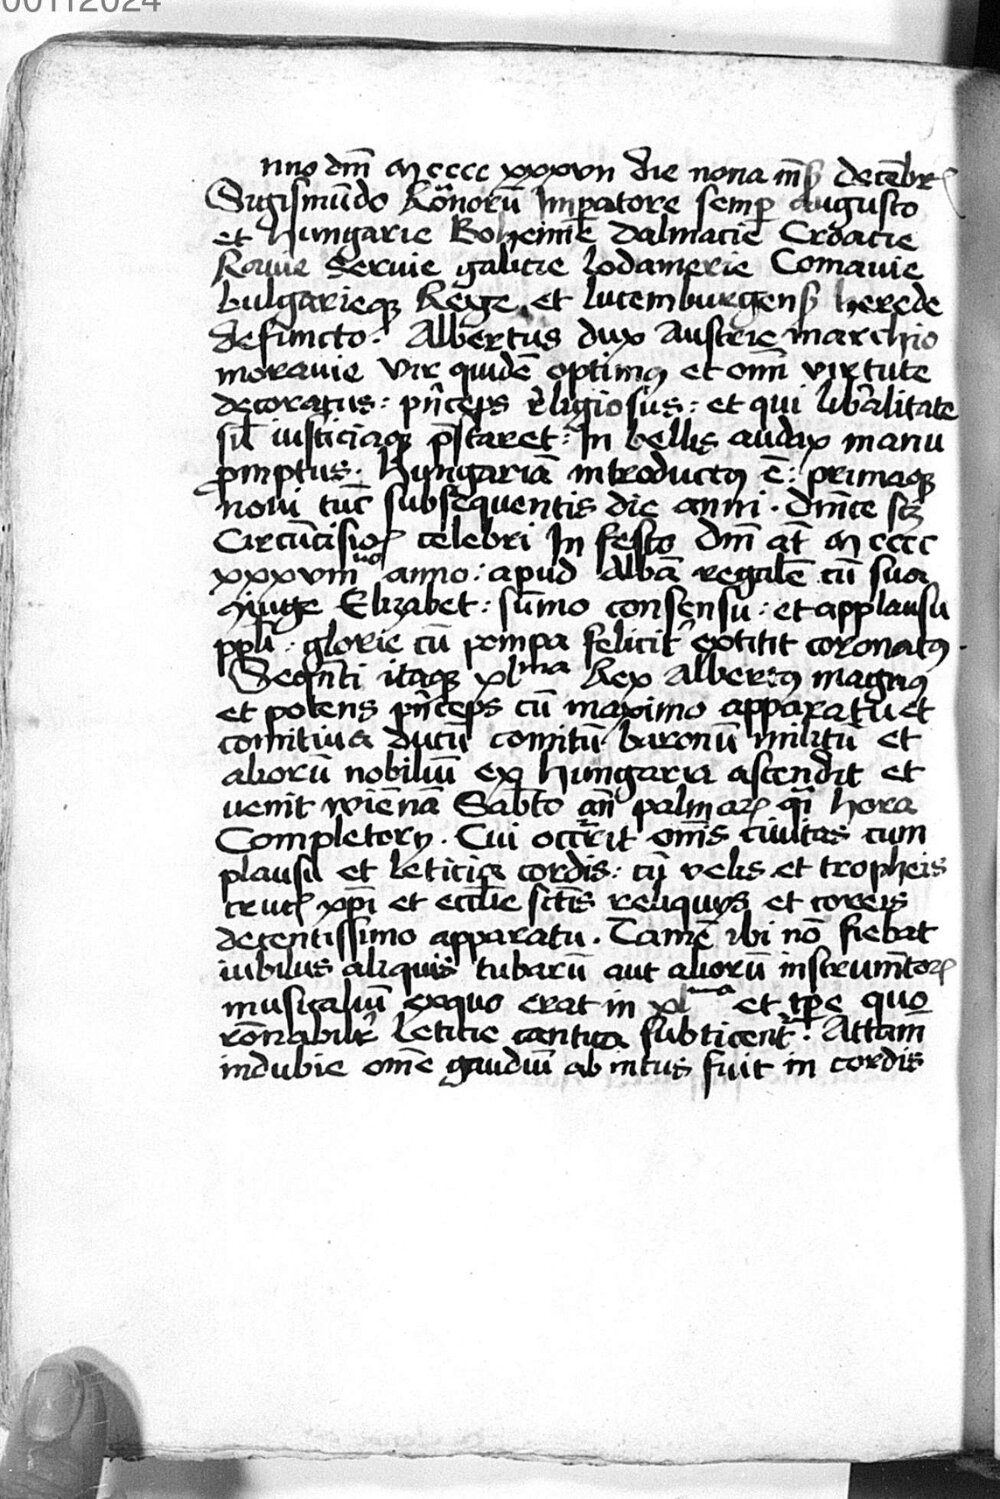 00112024
nno dm̄ M cccc xxxvii die nona me͞s decēbr
Sigismūdo Rom̄norū Imꝑatore semꝑ augusto
et Hungarie Bohemie Dalmacie Croacie
Ramie Seruie galicie lodamerie Comanie
bulgarieqꝫ Rege et lucemburgens̄ herede
defuncto. Albertus dux Austrie marchio
morauie vir quidē optimꝰ et om̄i virtute
decoratus: pn̄ceps religiosus: et qui lib̄alitate
sil̄ iusticiaqꝫ p̄staret: In bellis audax manu
promptus. Hungariā introductꝰ ē: primaqꝫ
noui tūc subsequentis die anni. Dnīce scꝫ
Circūcisio celebri In festo Dm̄ at̄ M cccc
xxxviii anno: apud Albā regalē cū sua
ꝯiuge Elizabet: sūmo consensu: et applausu
ppl̄i: glorie cū pompa felicit̄ extitit coronatꝰ.
Seqn̄ti itaqꝫ xlma Rex Albertꝰ magnꝰ
et potens pn̄ceps cū maximo apparatu et
comitiua ducū comitū baronū militū et
aliorū nobiliū ex Hungaria ascendit et
venit wiennā Sabb̄to an̄ palmaꝝ qn̄ hora
Completorij. Cui occr̄rit om̄is ciuitas cum
plausu et leticia cordis: cū velis et tropheis
crucis xp̄i et eccl̄ie sctīs reliquijs et ceteris
decentissimo apparatu. Tamē ibi nō fiebat
iubilus aliquis tubarū aut aliorū instrum̄toꝝ
musicaliū exquo erat in xlma et tp̄e quo
leticie cantica subticent̄. Attam̄
indubie om̄e gaudiū ab intus fuit in cordis